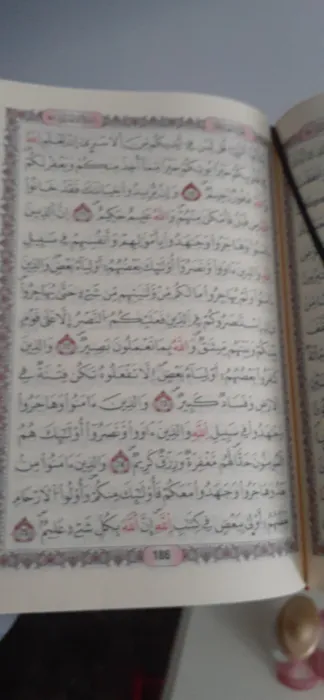 قُل لِّمَن فِيٓ أَيْدِيكُم مِّنَ ٱلْأَسْرَىٰٓ إِن يَعْلَمِ ٱللَّهُ
قُلُوبِكُمْ خَيْرًا يُؤْتِكُمْ خَيْرًا مِّمَّآ أُخِذَ مِنكُمْ وَيَغْفِرْ لَكُمْ
غَفُورٌ رَّحِيمٌ ٧٠ وَإِن يُرِيدُوا۟ خِيَانَتَكَ فَقَدْ خَانُوا۟
مِن قَبْلُ فَأَمْكَنَ مِنْهُمْ وَٱللَّهُ عَلِيمٌ حَكِيمٌ ٧١ إِنَّ ٱلَّذِينَ
ءَامَنُوا۟ وَهَاجَرُوا۟ وَجَٰهَدُوا۟ بِأَمْوَٰلِهِمْ وَأَنفُسِهِمْ فِى سَبِيلِ
ٱللَّهِ وَٱلَّذِينَ ءَاوَوا۟ وَّنَصَرُوٓا۟ أُو۟لَٰٓئِكَ بَعْضُهُمْ أَوْلِيَآءُ بَعْضٍ وَٱلَّذِينَ
ءَامَنُوا۟ وَلَمْ يُهَاجِرُوا۟ مَا لَكُم مِّن وَلَٰيَتِهِم مِّن شَىْءٍ حَتَّىٰ يُهَاجِرُوا۟
وَإِنِ ٱسْتَنصَرُوكُمْ فِى ٱلدِّينِ فَعَلَيْكُمُ ٱلنَّصْرُ إِلَّا عَلَىٰ قَوْمٍ
بَيْنَكُمْ وَبَيْنَهُم مِّيثَٰقٌ وَٱللَّهُ بِمَا تَعْمَلُونَ بَصِيرٌ ٧٢ وَٱلَّذِينَ
كَفَرُوا۟ بَعْضُهُمْ أَوْلِيَآءُ بَعْضٍ إِلَّا تَفْعَلُوهُ تَكُن فِتْنَةٌ فِى
ٱلْأَرْضِ وَفَسَادٌ كَبِيرٌ ٧٣ وَٱلَّذِينَ ءَامَنُوا۟ وَهَاجَرُوا۟
وَجَٰهَدُوا۟ فِى سَبِيلِ ٱللَّهِ وَٱلَّذِينَ ءَاوَوا۟ وَّنَصَرُوٓا۟ أُو۟لَٰٓئِكَ هُمُ
ٱلْمُؤْمِنُونَ حَقًّا لَّهُم مَّغْفِرَةٌ وَرِزْقٌ كَرِيمٌ ٧٤ وَٱلَّذِينَ ءَامَنُوا۟ مِنۢ
بَعْدُ وَهَاجَرُوا۟ وَجَٰهَدُوا۟ مَعَكُمْ فَأُو۟لَٰٓئِكَ مِنكُمْ وَأُو۟لُوا۟ ٱلْأَرْحَامِ
بَعْضُهُمْ أَوْلَىٰ بِبَعْضٍ فِى كِتَٰبِ ٱللَّهِ إِنَّ ٱللَّهَ بِكُلِّ شَىْءٍ عَلِيمٌ ٧٥
186